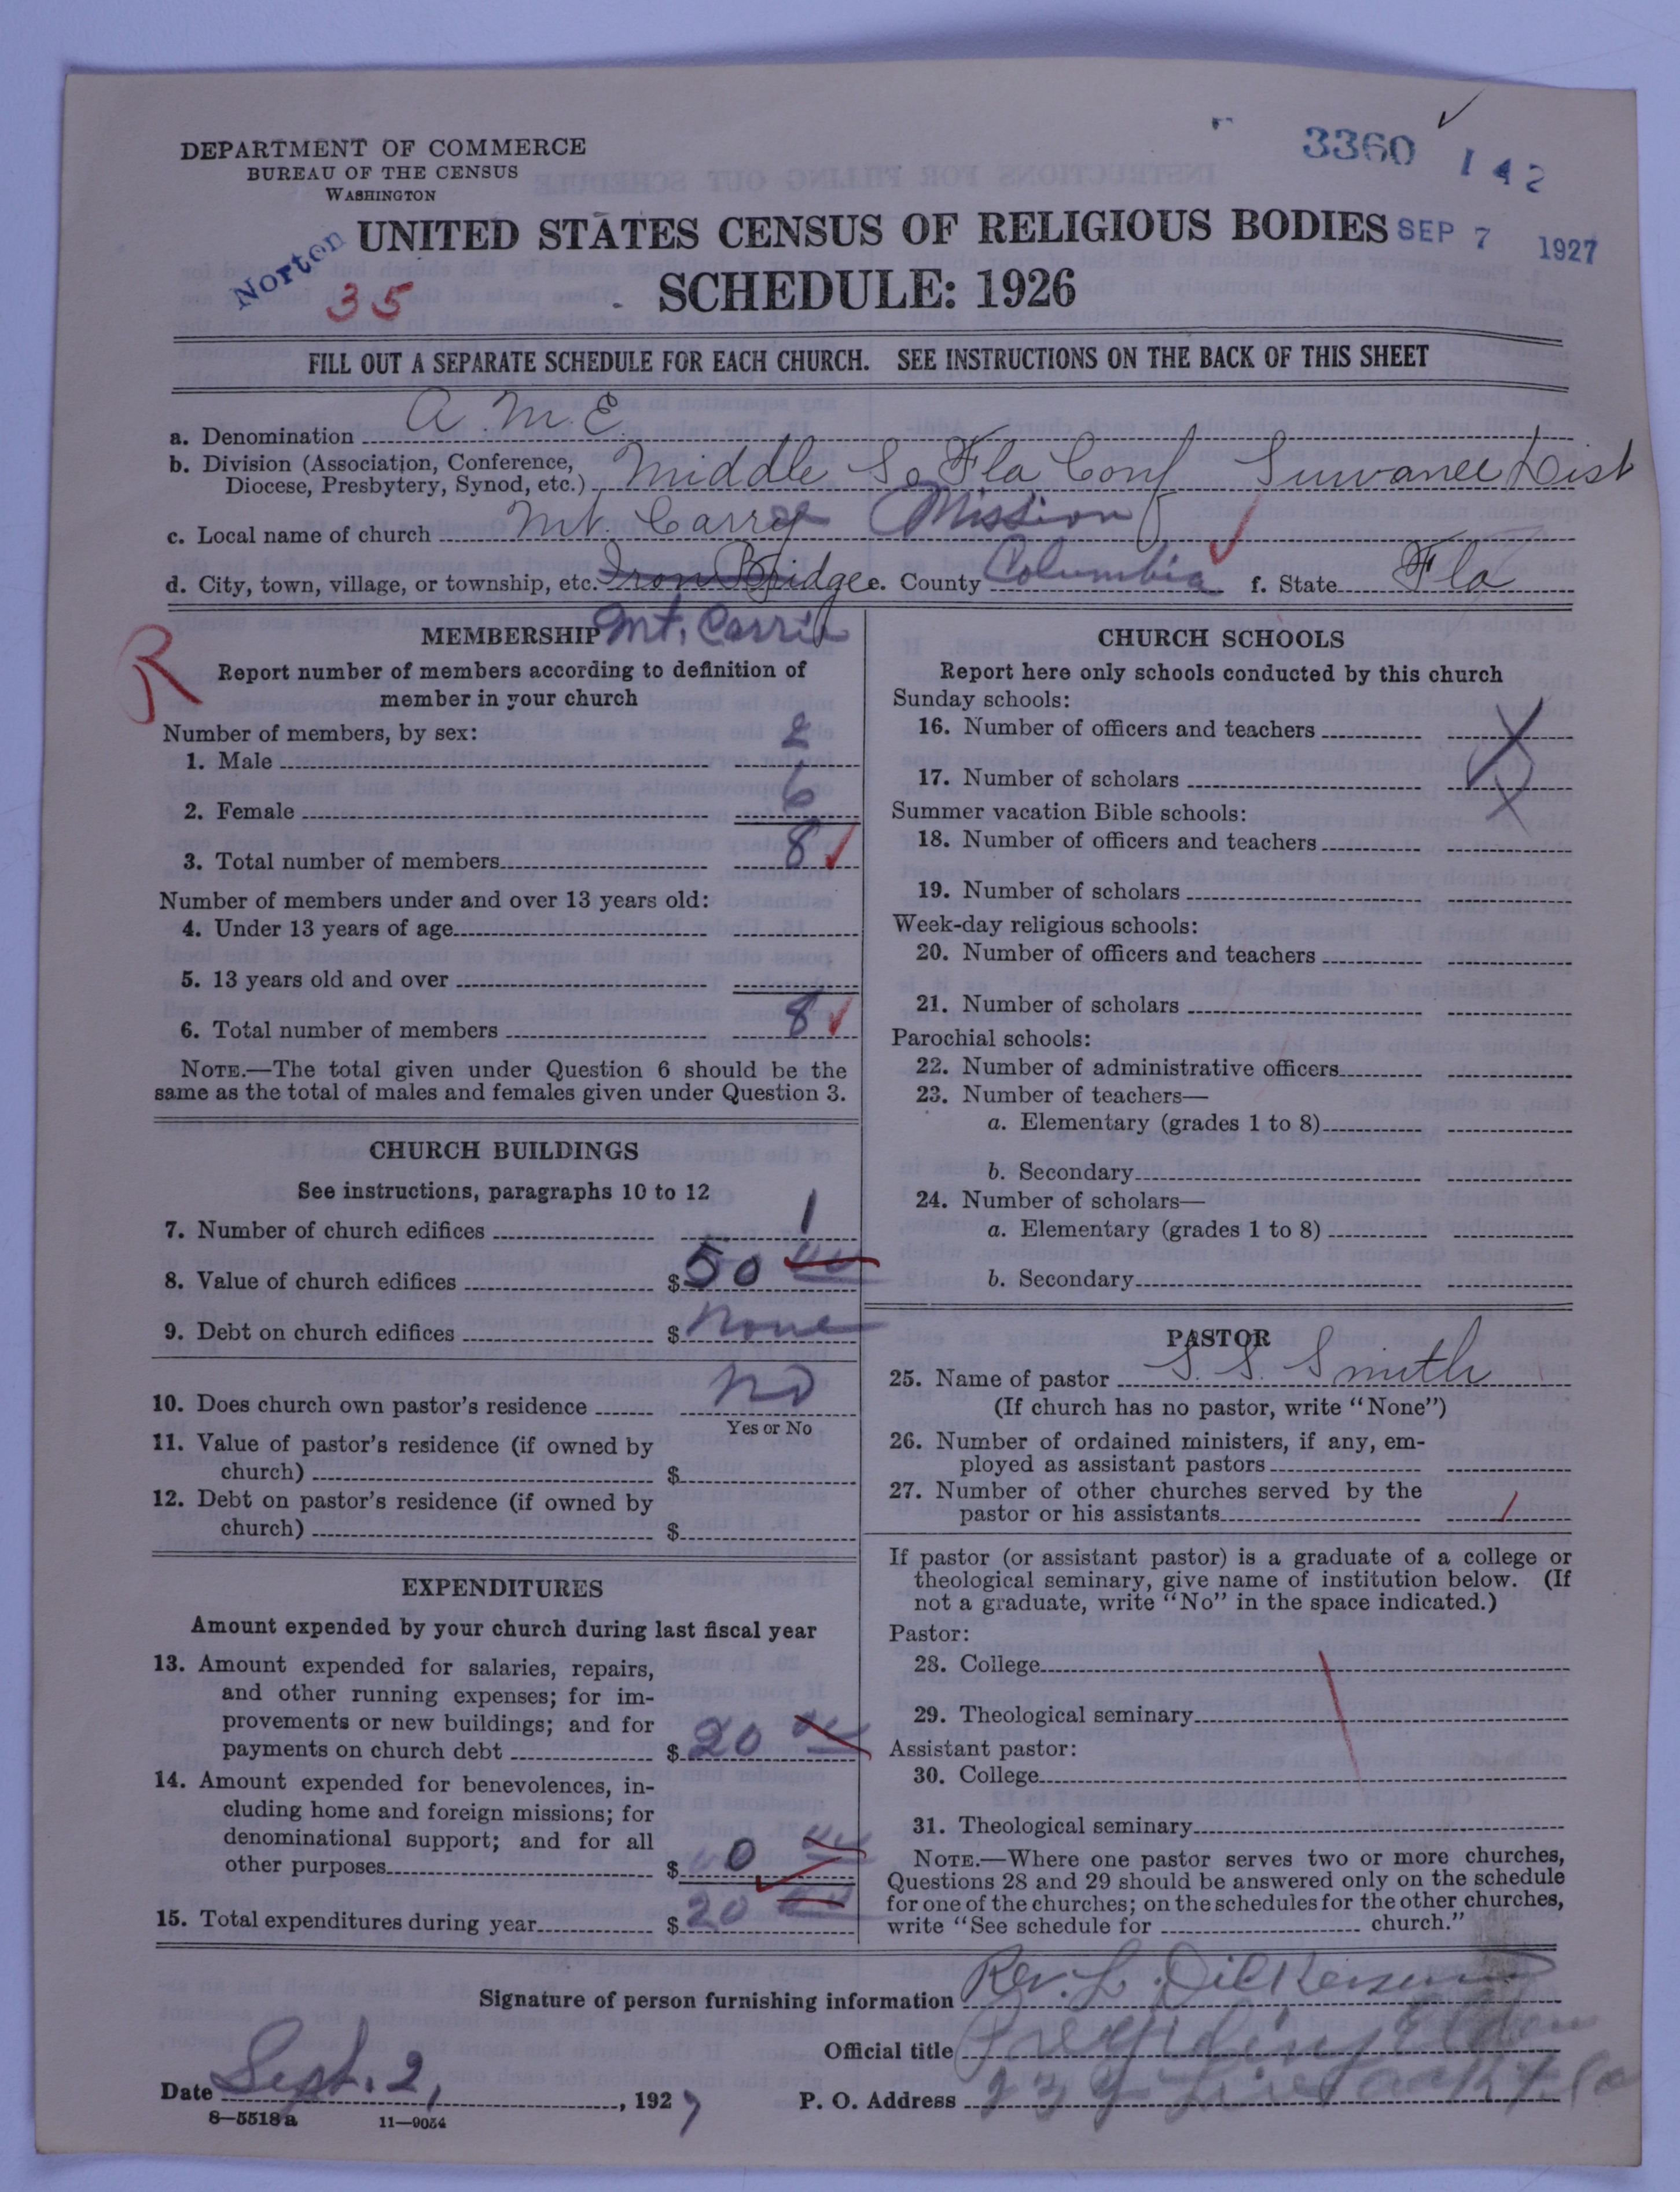 3360 142
DEPARTMENT OF COMMERCE
BUREAU OF THE CENSUS
WASHINGTON
UNITED STATES CENSUS OF RELIGIOUS BODIES
SEP 7 1927
Norton
35
SCHEDULE: 1926
FILL OUT A SEPARATE SCHEDULE FOR EACH CHURCH. SEE INSTRUCTIONS ON THE BACK OF THIS SHEET
a. Denomination A.M.E.
b. Division (Association, Conference,
Diocese, Presbytery, Synod, etc.) Middle So Fla Conf Suwanee Dist
c. Local name of church Mt. Carry Mission
d. City, town, village, or township, etc. Iron Bridge e. County Columbia f. State Fla
Mt. Carrie
R
MEMBERSHIP
Report number of members according to definition of
member in your church
Number of members, by sex:
1. Male 2
2. Female 6
3. Total number of members 8
Number of members under and over 13 years old:
4. Under 13 years of age
5. 13 years old and over
6. Total number of members 8
NOTE.—The total given under Question 6 should be the
same as the total of males and females given under Question 3.
CHURCH BUILDINGS
See instructions, paragraphs 10 to 12
7. Number of church edifices 1
8. Value of church edifices $50 00
9. Debt on church edifices $None
10. Does church own pastor's residence No
Yes or No
11. Value of pastor's residence (if owned by
church) $
12. Debt on pastor's residence (if owned by
church) $
EXPENDITURES
Amount expended by your church during last fiscal year
13. Amount expended for salaries, repairs,
and other running expenses; for im-
provements or new buildings; and for
payments on church debt $20 00
14. Amount expended for benevolences, in-
cluding home and foreign missions; for
denominational support; and for all
other purposes $ 0 00
15. Total expenditures during year $20 00
CHURCH SCHOOLS
Report here only schools conducted by this church
Sunday schools:
16. Number of officers and teachers X
17. Number of scholars X
Summer vacation Bible schools:
18. Number of officers and teachers
19. Number of scholars
Week-day religious schools:
20. Number of officers and teachers
21. Number of scholars
Parochial schools:
22. Number of administrative officers
23. Number of teachers—
a. Elementary (grades 1 to 8)
b. Secondary
24. Number of scholars—
a. Elementary (grades 1 to 8)
b. Secondary
PASTOR
25. Name of pastor S. S. Smith
(If church has no pastor, write "None")
26. Number of ordained ministers, if any, em-
ployed as assistant pastors
27. Number of other churches served by the
pastor or his assistants
If pastor (or assistant pastor) is a graduate of a college or
theological seminary, give name of institution below. (If
not a graduate, write "No" in the space indicated.)
Pastor:
28. College
29. Theological seminary
Assistant pastor:
30. College
31. Theological seminary
NOTE.—Where one pastor serves two or more churches,
Questions 28 and 29 should be answered only on the schedule
for one of the churches; on the schedules for the other churches,
write "See schedule for church."
Signature of person furnishing information Rev. L. Dilkerson
Official title Presiding Elder
Date Sept. 2, 1927 P. O. Address
8—5518a 11—9054